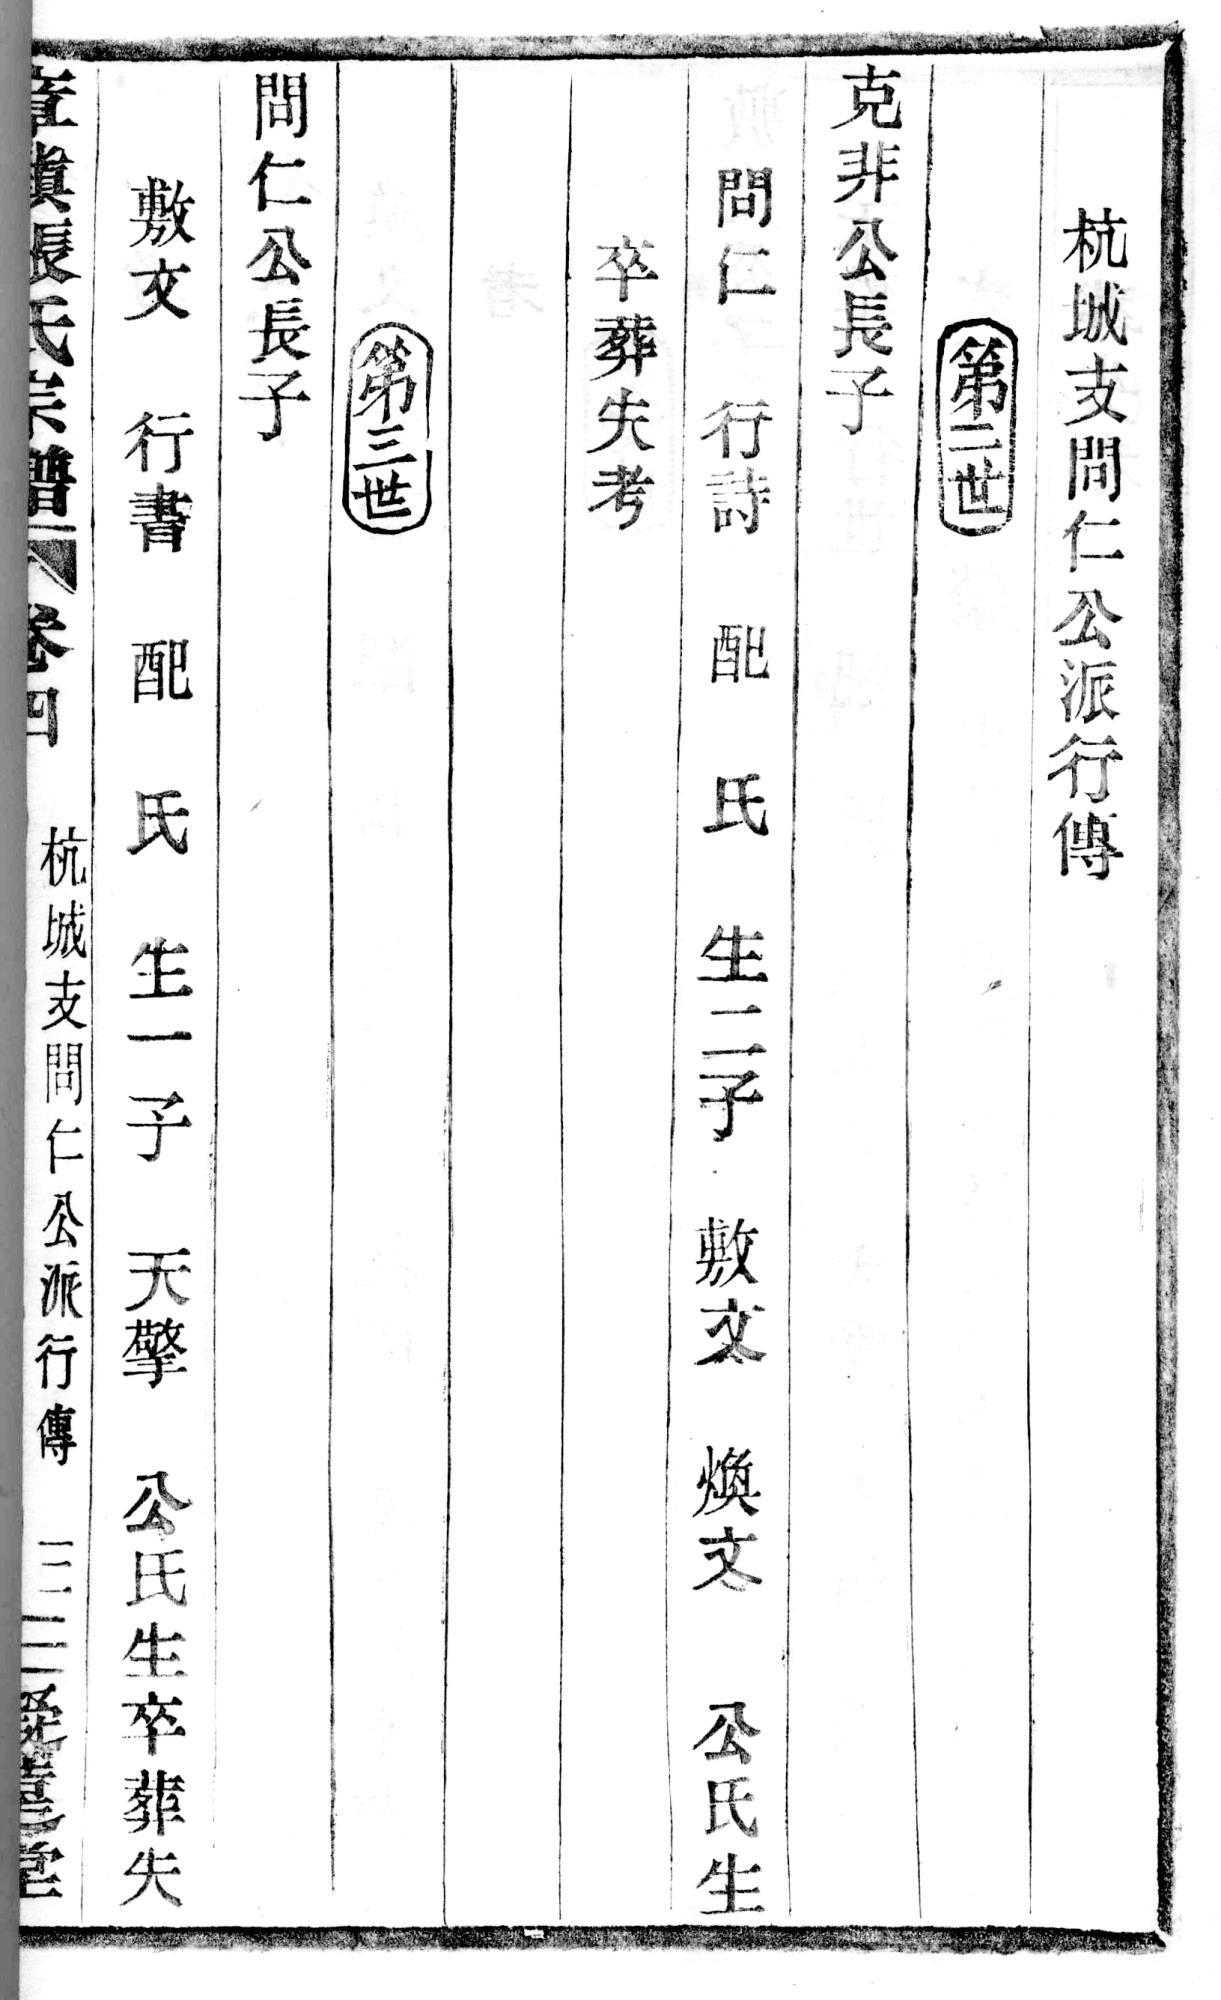 杭城支問仁公派行傳
第二世
克非公長子
問仁 行詩 配 氏 生二子 敷文 煥文 公氏生
卒葬失考
第三世
問仁公長子
敷文 行書 配 氏 生一子 天擎 公氏生卒葬失
章鎮張氏宗譜 卷四 杭城支問仁公派行傳 三 堂